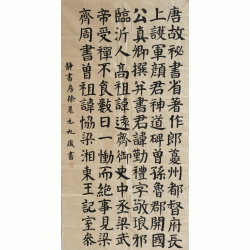 唐故秘書省著作郎夔州都督府長
上護軍顏君神道碑曾孫魯郡開國
公真卿撰并書君諱勤禮字敬琅邪
臨沂人高祖諱遠齊御史中丞梁武
帝受禪不食數日一慟而絕事見梁
齊周書曾祖諱協梁湘東王記室參
静書房徐星九